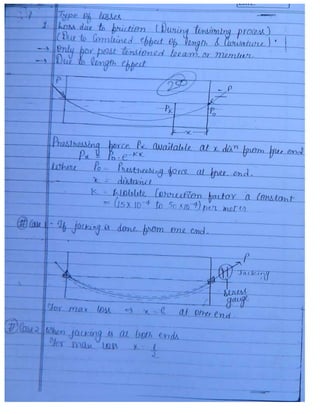 Type of losses
1. Loss due to friction (During tensioning process)
(Due to Combined effect of length & Curvature)
→ Only for post tensioned beam or member.
→ Due to length effect
P
250
P
Px
P0
x
Prestressing force Px available at x distn from free end
Px = P0 · e^-kx
where P0 = Prestressing force at free end.
x = distance
k = Wobble Correction factor a constant
= (15×10^-4 to 50×10^-4) per meter
# Case 1 - If jacking is done from one end.
P
Jacking
stress
gauge
For max loss ⇒ x = l at one end
# Case 2 When jacking is at both ends
For max loss x = l